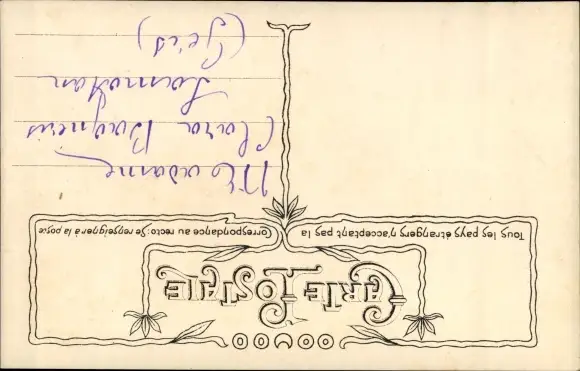 CARTE POSTALE
Tous les pays étrangers n'acceptant pas la
Correspondance au recto: Se renseigner à la poste
Madame
Clara
(Gers)